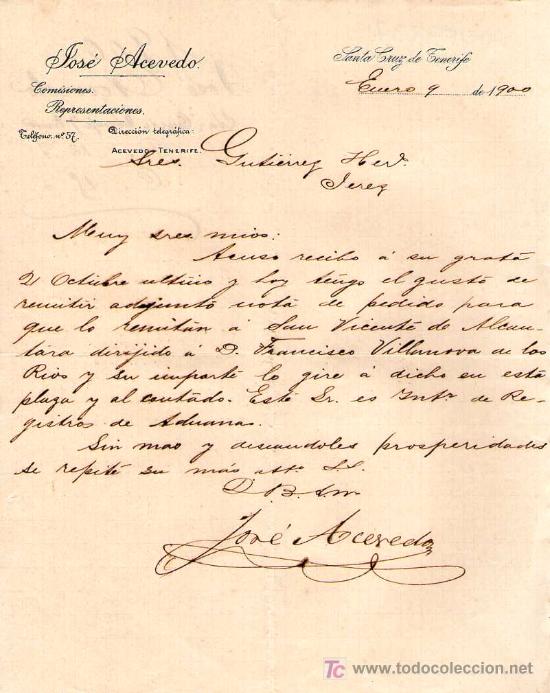 José Acevedo.
Comisiones.
Representaciones.
Teléfono. nº 57.
Dirección telegráfica:
ACEVEDO-TENERIFE.
Santa Cruz de Tenerife
Enero 9 de 1900
Sres. Gutiérrez Herº.
Jerez
Muy sres. mios:
Acuso recibo á su grata
21 Octubre ultimo y hoy tengo el gusto de
remitir adjunto nota de pedido para
que lo remitan á San Vicente de Alcan-
tara dirijido á D. Francisco Villanova de los
Rios y su importe lo gire á dicho su esta
plaza y al contado. Este Sr. es Intr. de Re-
gistros de Aduana.
Sin mas y deseandoles prosperidades
se repite su más atto. S.S.
Q. B. s. m
José Acevedo
TC www.todocoleccion.net